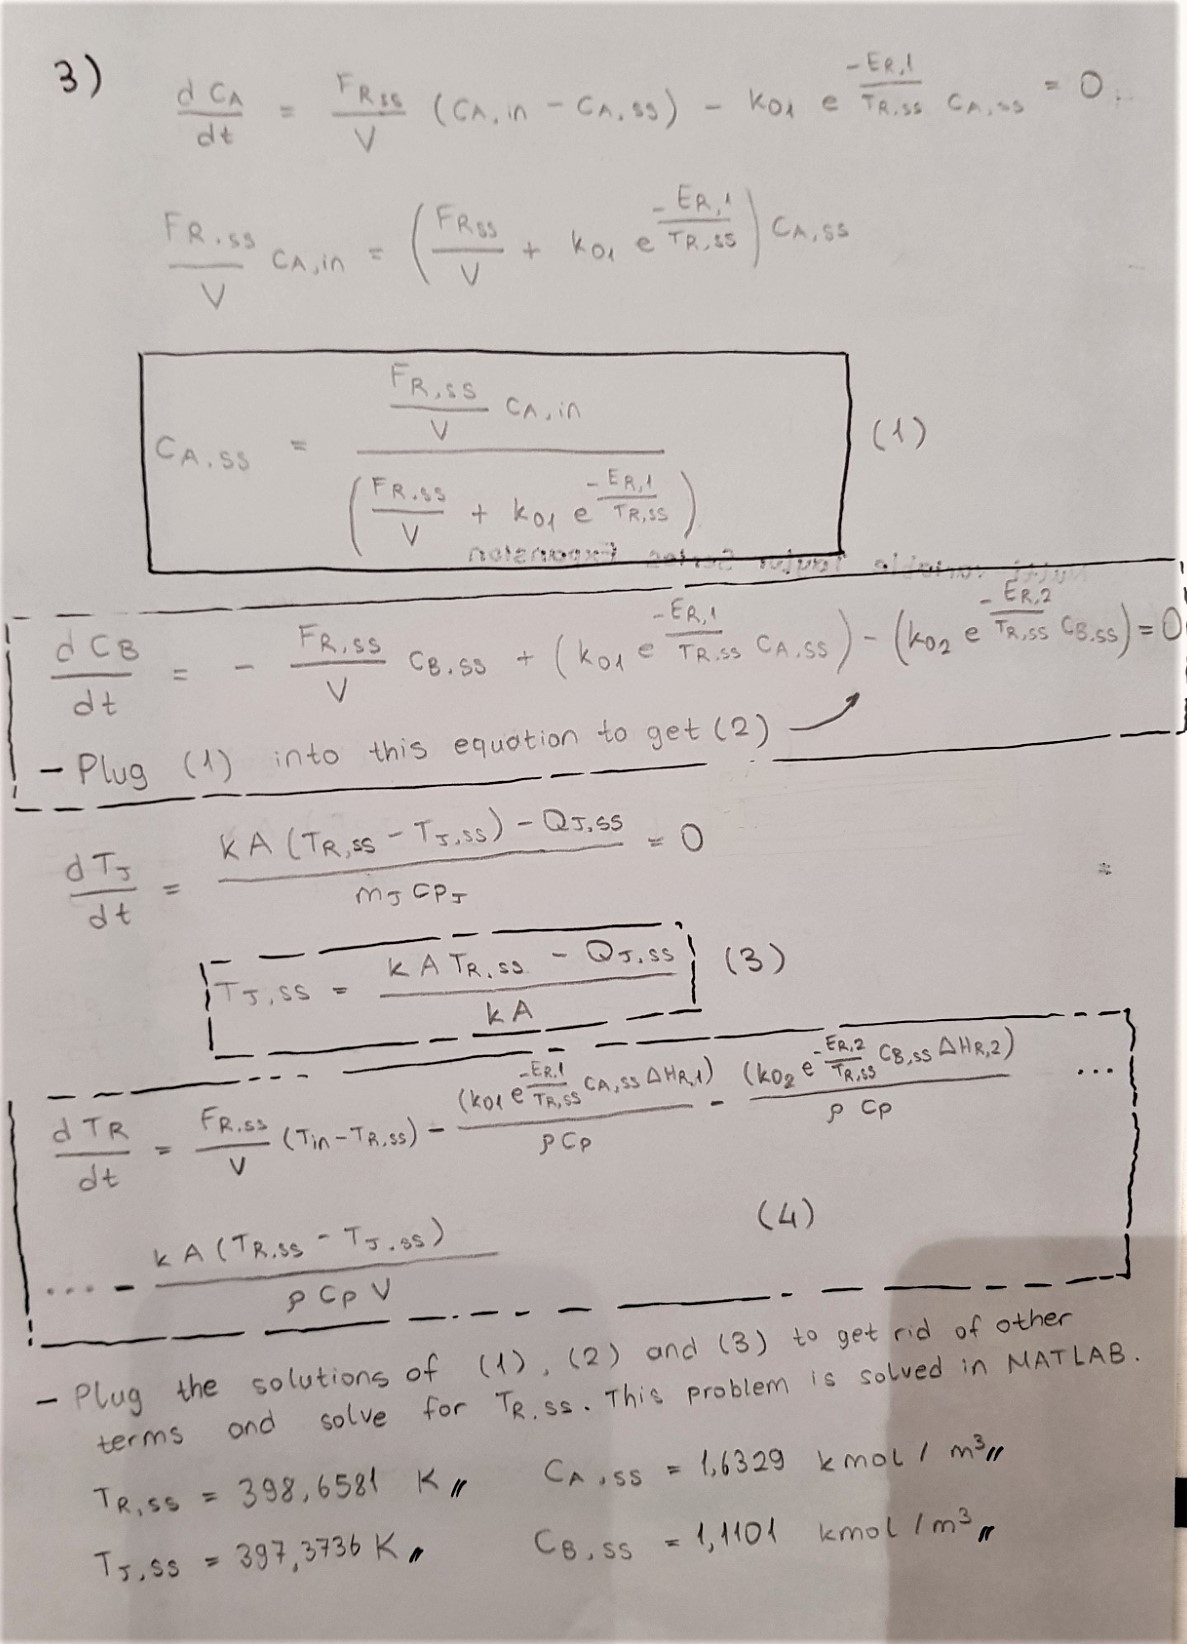 3) d CA / dt = FRss / V (CA,in - CA,ss) - k01 e^(-ER,1 / TR,ss) CA,ss = 0
FR,ss / V CA,in = (FRss / V + k01 e^(-ER,1 / TR,ss)) CA,ss
CA,ss = (FR,ss / V CA,in) / (FR,ss / V + k01 e^(-ER,1 / TR,ss)) (1)
Multi-variable Taylor Series Expansion
d CB / dt = - FR,ss / V CB,ss + (k01 e^(-ER,1 / TR,ss) CA,ss) - (k02 e^(-ER,2 / TR,ss) CB,ss) = 0
- Plug (1) into this equation to get (2)
d TJ / dt = (kA (TR,ss - TJ,ss) - QJ,ss) / (mJ CPJ) = 0
TJ,ss = (kA TR,ss - QJ,ss) / kA (3)
d TR / dt = FR,ss / V (Tin - TR,ss) - (k01 e^(-ER,1 / TR,ss) CA,ss ΔHR,1) / ρCp - (k02 e^(-ER,2 / TR,ss) CB,ss ΔHR,2) / ρ Cp ...
... - kA (TR,ss - TJ,ss) / ρ Cp V (4)
- Plug the solutions of (1), (2) and (3) to get rid of other
terms and solve for TR,ss. This problem is solved in MATLAB.
TR,ss = 398,6581 K // CA,ss = 1,6329 kmol / m³ //
TJ,ss = 397,3736 K // CB,ss = 1,1101 kmol / m³ //